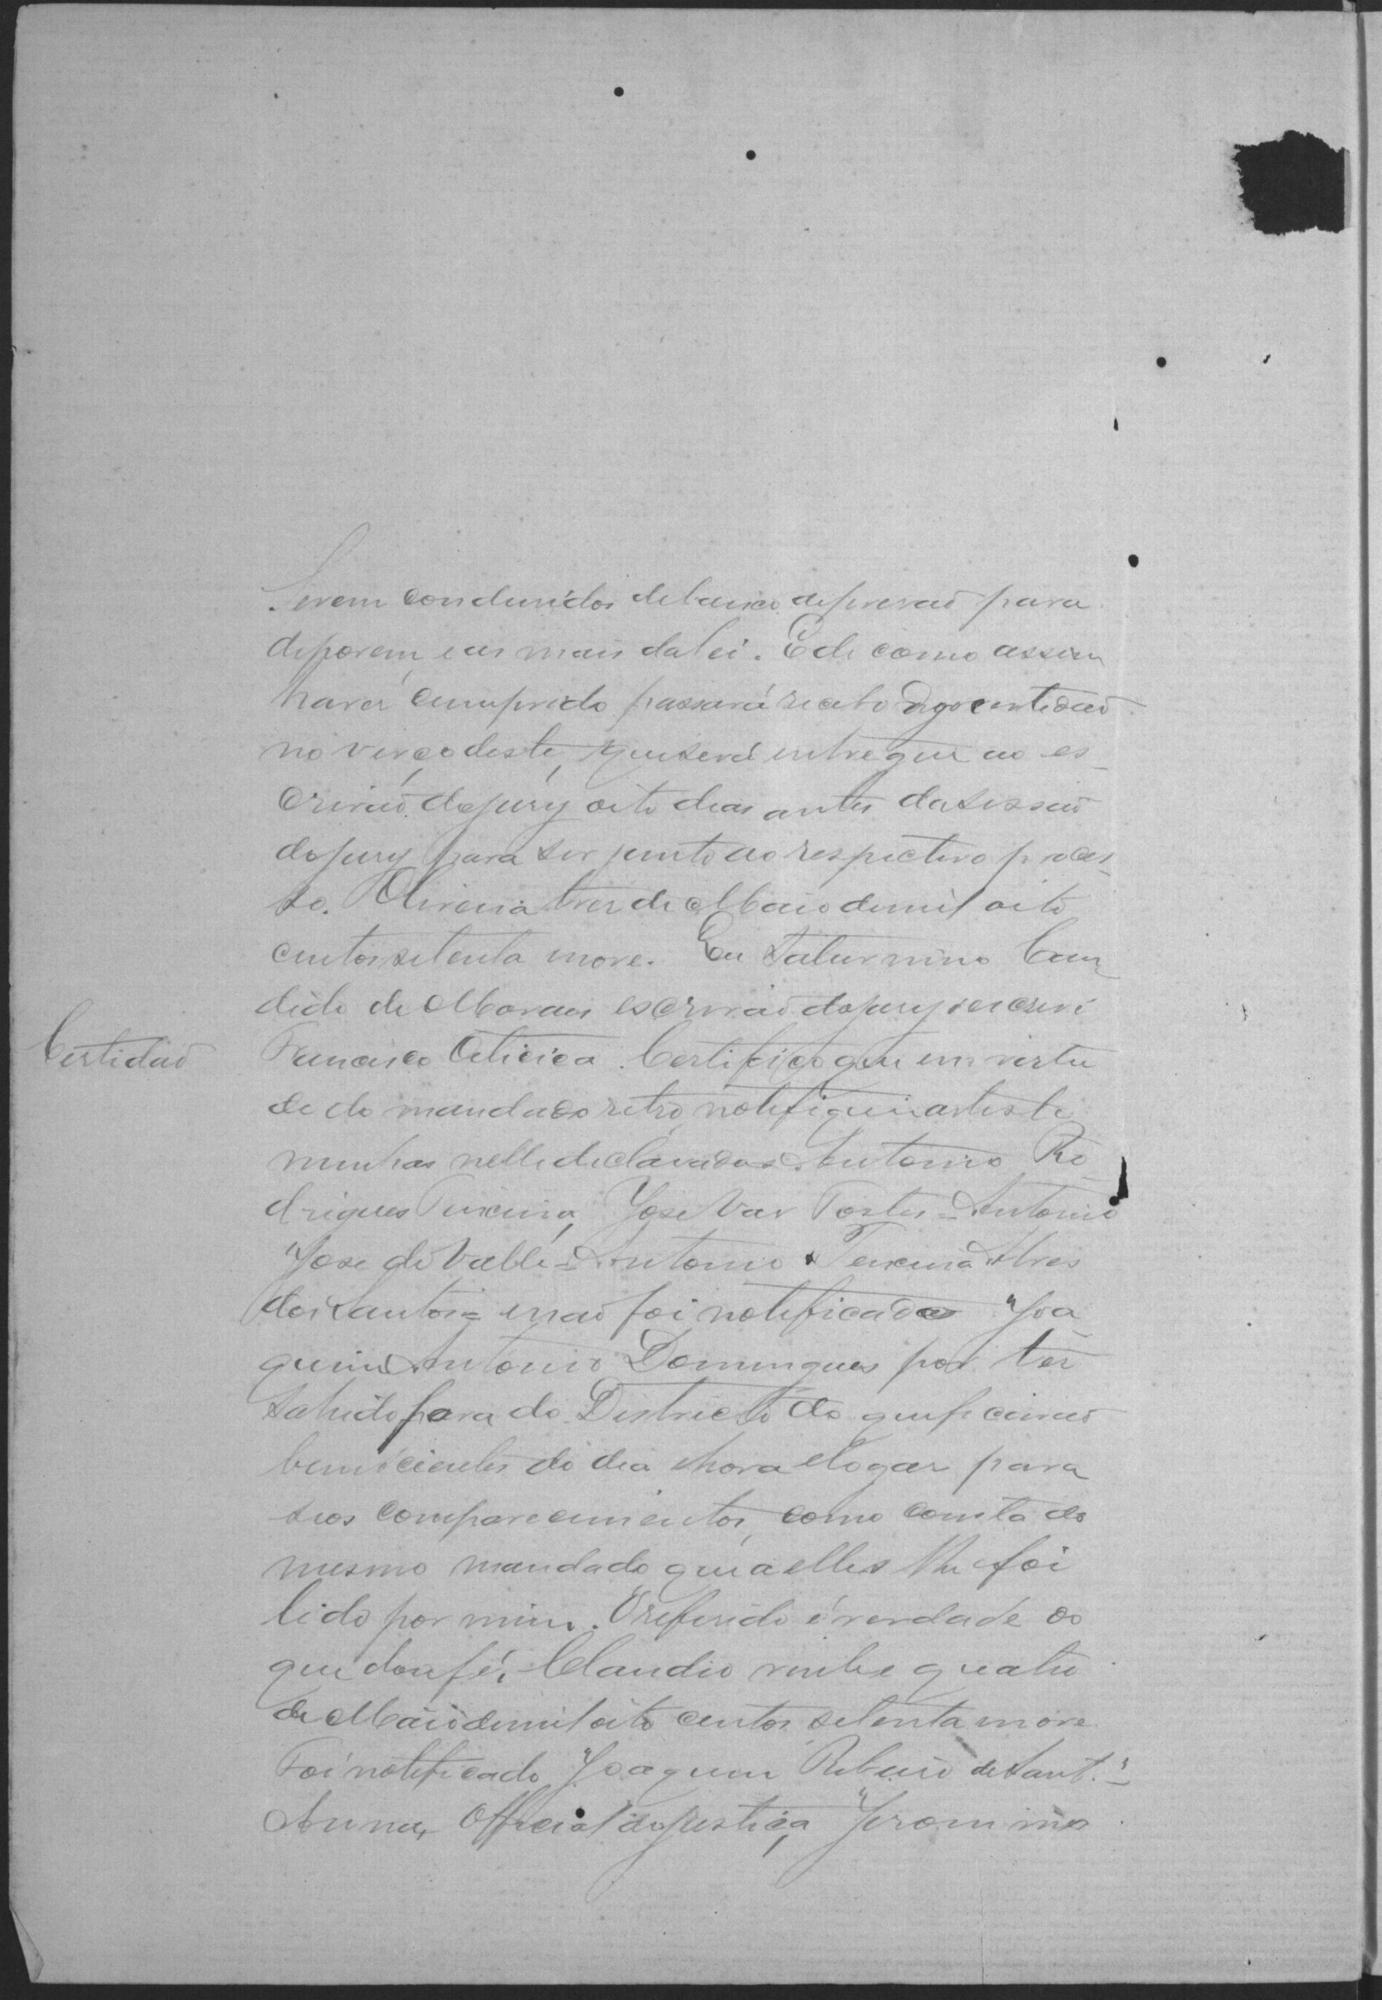 Serem condusidos debaixo de prisaõ para
deporem, e as mais da lei. E de como assim
haver cumprido passará recebo digo certidaõ
no verço deste, que será entregue ao es-
crivaõ do jury oito dias antes da sessaõ
do jury para ser junto ao respectivo proces-
so. Oliveira tres de Maio de mil oito
centos setenta nove. Eu Saturnino Can
dido de Moraes escrivaõ do jury escrevi
Certidaõ
Francisco Oiticica. Certifico que em virtu
de do mandado retro, notifiquei as teste
munhas nelle declaradas Antonio Ro
drigues Teixeira, José Vas Tostes = Antonio
José do Valle = Antonio Teixeira Alves
dos Santos = e naõ foi notificado Joa
quim Antonio Domingues por ter
sahido fora do Districto do que ficaraõ
bem scientes do dia e hora e logar para
seos comparecimentos, como consta do
mesmo mandado que a elles lhe foi
lido por mim. O referido é verdade do
que dou fé, Claudio vinte e quatro
de Maio de mil oito centos setenta nove
Foi notificado Joaquim Ribeiro de Sant'-
Anna, Official de justiça, Jeronimo